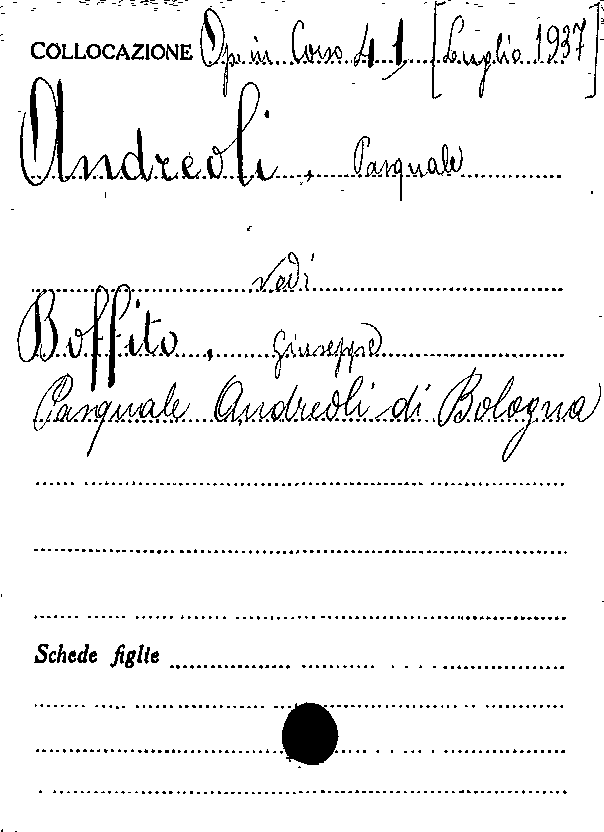 COLLOCAZIONE Op. in Corso 41 [Luglio 1937]
Andreoli, Pasquale
vedi
Boffito, Giuseppe
Pasquale Andreoli di Bologna
Schede figlie